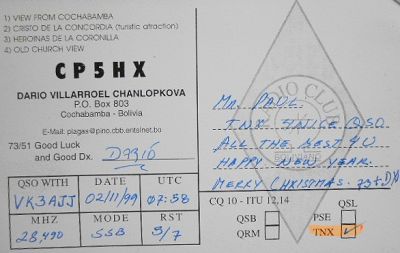 1) VIEW FROM COCHABAMBA
2) CRISTO DE LA CONCORDIA (turistic atraction)
3) HEROINAS DE LA CORONILLA
4) OLD CHURCH VIEW
CP5HX
DARIO VILLARROEL CHANLOPKOVA
P.O. Box 803
Cochabamba - Bolivia
E-Mail: plagas@pino.cbb.entelnet.bo
73/51 Good Luck
and Good Dx. Darió
QSO WITH DATE UTC
VK3AJJ 02/11/99 07:58
MHZ MODE RST
28,490 SSB 5/7
RADIO CLUB
Mr. PAUL
TNX 4 NICE QSO
ALL THE BEST 4U
HAPPY NEW YEAR
MERRY CHRISTMAS. 73 + DX
CQ 10 - ITU 12,14 QSL
QSB PSE
QRM TNX ✓